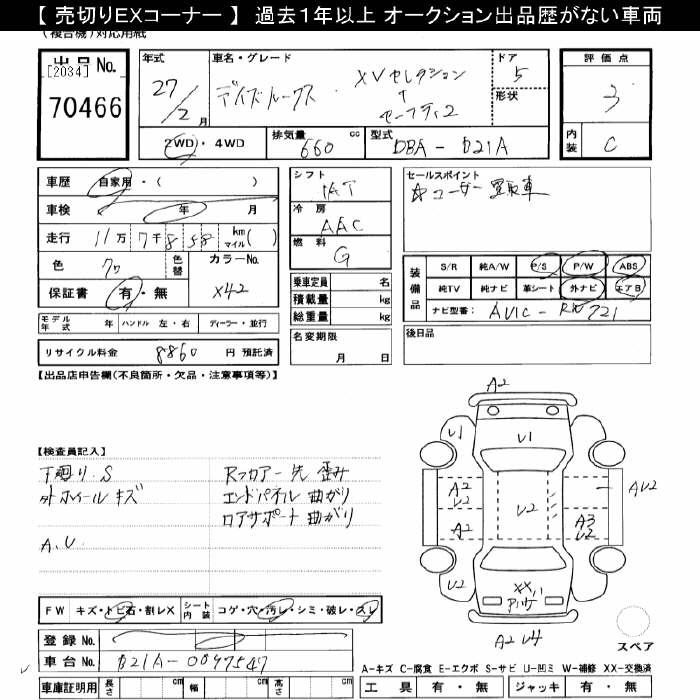 【 売切りEXコーナー 】 過去1年以上 オークション出品歴がない車両
(複合機)対応用紙
出品 No.
[2034]
70466
年式
27/2月
車名・グレード
デイズルークス XVセレクション
+セーフティ2
ドア
5
形状
評価点
3
内装
C
2WD・4WD
排気量
660 cc
型式
DBA-B21A
車歴 自家用・( )
車検 年 月
走行 11万7千858 km マイル( )
色 クロ 色替 カラーNo. X42
保証書 有・無
モデル年式 年 ハンドル 左・右 ディーラー・並行
リサイクル料金 8860 円 預託済
シフト
IAT
冷房
AAC
燃料
G
乗車定員 名
積載量 kg
総重量 kg
名変期限
月 日
セールスポイント
☆ユーザー買取車
装備品
S/R 純A/W P/S P/W ABS
純TV 純ナビ 革シート 外ナビ エアB
ナビ型番: AVIC-RW721
後日品
【出品店申告欄(不良箇所・欠品・注意事項等)】
【検査員記入】
下廻り.S
外ホイールキズ
A.U
Rフロアー先 歪み
エンドパネル 曲がり
ロアサポート 曲がり
A2
U1
U1
A2
U2
A2
U2
AU2
A3
U2
U2
XX
A2 U4
スペア
FW キズ・トビ石・割レX シート内装 コゲ・穴・汚レ・シミ・破レ・スレ
登録 No.
車台 No. B21A-0097547
車庫証明用 長さ cm 幅 cm 高さ cm
A-キズ C-腐食 E-エクボ S-サビ U-凹ミ W-補修 XX-交換済
工具 有・無 ジャッキ 有・無